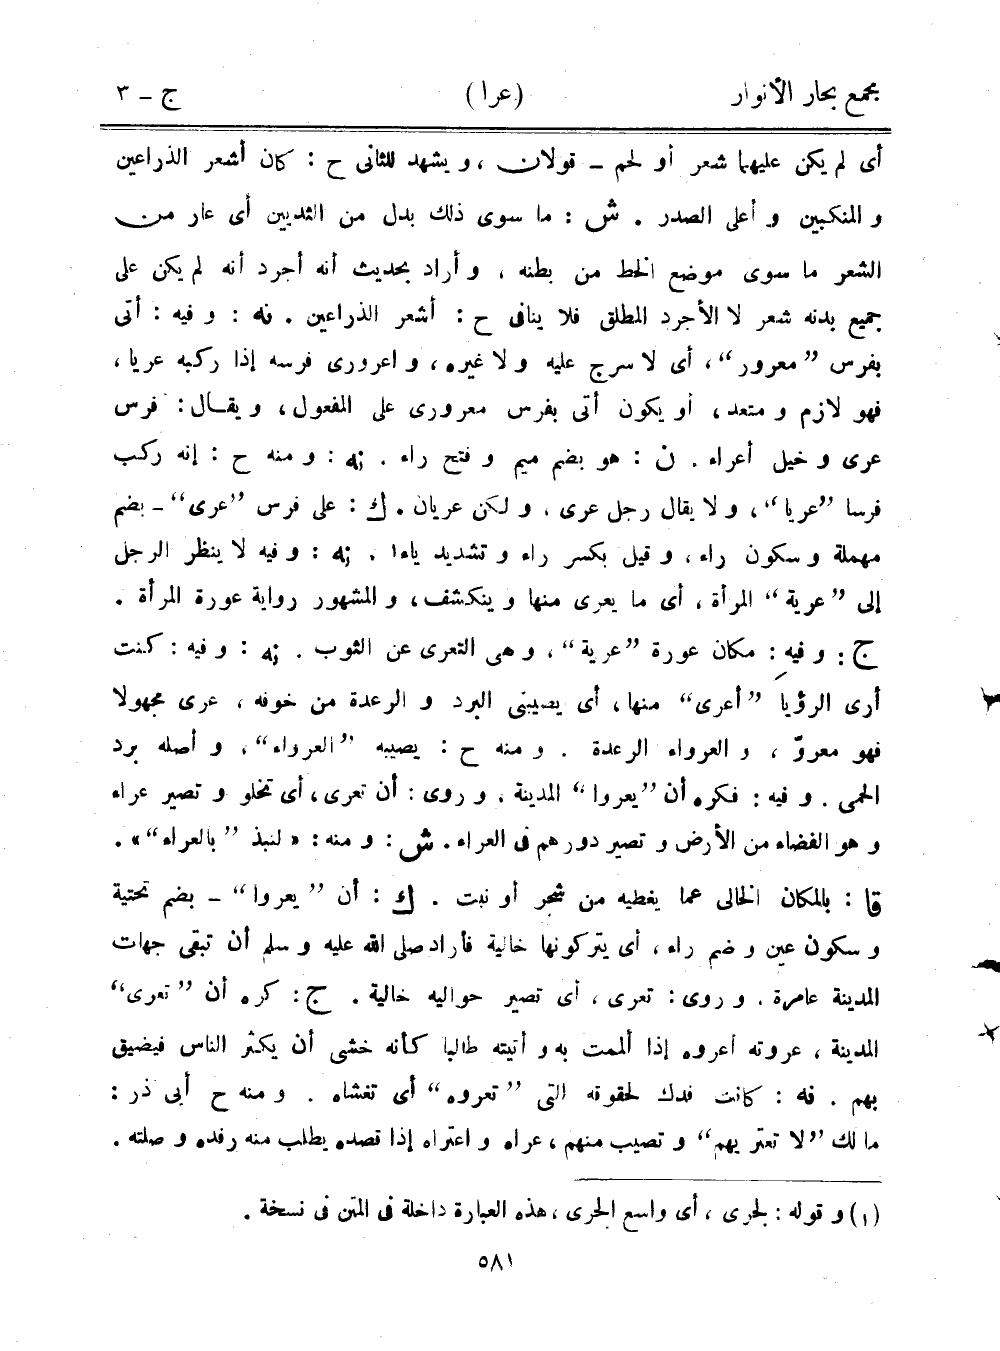 مجمع بحار الأنوار (عرا) ج - ٣
أى لم يكن عليهما شعر أو لحم - قولان ، و يشهد للثانى ح : كان أشعر الذراعين
و المنكبين و أعلى الصدر . ش : ما سوى ذلك بدل من الثديين أى عار من
الشعر ما سوى موضع الخط من بطنه ، و أراد بحديث أنه أجرد أنه لم يكن على
جميع بدنه شعر لا الأجرد المطلق فلا ينافى ح : أشعر الذراعين . نه : و فيه : أتى
بفرس ”معرور“، أى لا سرج عليه و لا غيره، و اعرورى فرسه إذا ركبه عريا،
فهو لازم و متعد، أو يكون أتى بفرس معرورى على المفعول، و يقال: فرس
عرى و خيل أعراء . ن : هو بضم ميم و فتح راء . نه : و منه ح : إنه ركب
فرسا ”عريا“، و لا يقال رجل عرى ، و لكن عريان . ك : على فرس ”عرى“ - بضم
مهملة و سكون راء، و قيل بكسر راء و تشديد ياء١ . نه : و فيه لا ينظر الرجل
إلى ”عرية“ المرأة ، أى ما يعرى منها و ينكشف، و المشهور رواية عورة المرأة .
ج : و فيه : مكان عورة ”عرية“، و هى التعرى عن الثوب . نه : و فيه : كنت
أرى الرؤيا ”أعرى“ منها، أى يصيبنى البرد و الرعدة من خوفه ، عرى مجهولا
فهو معروّ ، و العرواء الرعدة . و منه ح : يصيبه ”العرواء“، و أصله برد
الحمى . و فيه : فكره أن ”يعروا“ المدينة ، و روى : أن تعرى، أى تخلو و تصير عراء
و هو الفضاء من الأرض و تصير دورهم فى العراء . ش : و منه : « لنبذ ”بالعراء“» .
قا : بالمكان الخالى عما يغطيه من شجر أو نبت . ك : أن ”يعروا“ - بضم تحتية
و سكون عين و ضم راء، أى يتركونها خالية فأراد صلى الله عليه و سلم أن تبقى جهات
المدينة عامرة . و روى : تعرى ، أى تصير حواليه خالية . ج : كره أن ”تعرى“
المدينة ، عروته أعروه إذا ألممت به و أتيته طالبا كأنه خشى أن يكثر الناس فيضيق
بهم . نه : كانت فدك لحقوقه التى ”تعروه“ أى تغشاه . و منه ح أبى ذر :
ما لك ”لا تعتريهم“ و تصيب منهم ، عراه و اعتراه إذا قصده يطلب منه رفده و صلته .
(١) و قوله : لجرى ، أى واسع الجرى ، هذه العبارة داخلة فى المتن فى نسخة .
٥٨١